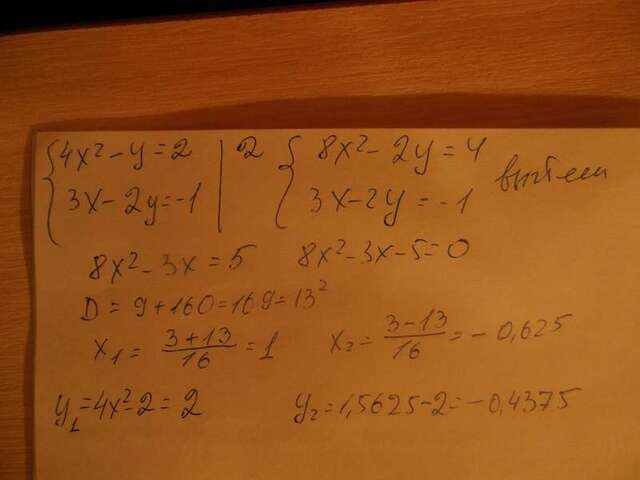 {4x² - y = 2 | 2 {8x² - 2y = 4 вычтем
{3x - 2y = -1 {3x - 2y = -1
8x² - 3x = 5 8x² - 3x - 5 = 0
D = 9 + 160 = 169 = 13²
x₁ = (3 + 13)/16 = 1 x₂ = (3 - 13)/16 = -0,625
y₁ = 4x² - 2 = 2 y₂ = 1,5625 - 2 = -0,4375